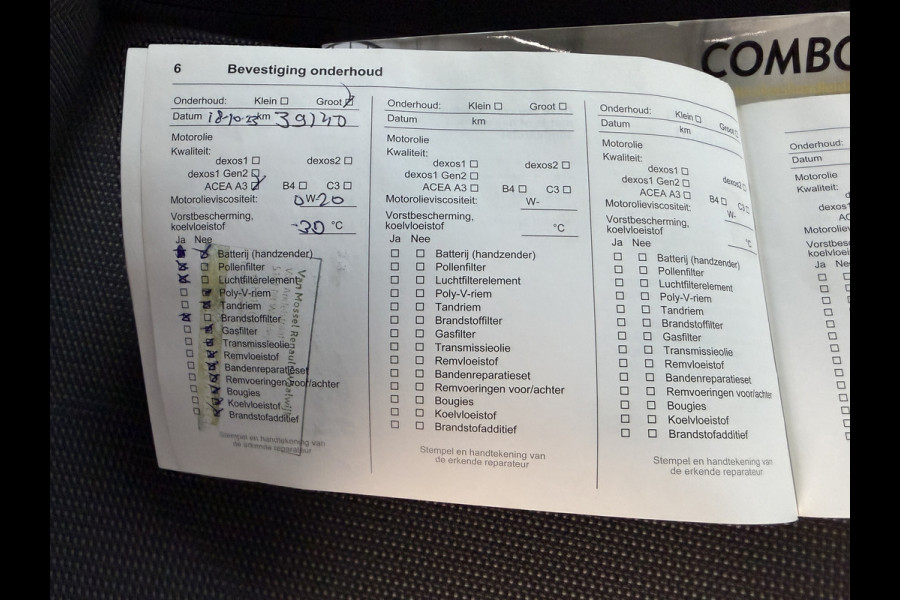 COMBO
6 Bevestiging onderhoud
Onderhoud: Klein ☐ Groot ☒
Datum 18-10-23 km 39140
Motorolie
Kwaliteit:
dexos1 ☐ dexos2 ☐
dexos1 Gen2 ☐
ACEA A3 ☒ B4 ☐ C3 ☐
Motorolieviscositeit: 0W-20
Vorstbescherming,
koelvloeistof -30 °C
Ja Nee
Batterij (handzender)
Pollenfilter
Luchtfilterelement
Poly-V-riem
Tandriem
Brandstoffilter
Gasfilter
Transmissieolie
Remvloeistof
Bandenreparatieset
Remvoeringen voor/achter
Bougies
Koelvloeistof
Brandstofadditief
Van Mossel Renault Waalwijk
Stempel en handtekening van
de erkende reparateur
Onderhoud: Klein ☐ Groot ☐
Datum km
Motorolie
Kwaliteit:
dexos1 ☐ dexos2 ☐
dexos1 Gen2 ☐
ACEA A3 ☐ B4 ☐ C3 ☐
Motorolieviscositeit: W-
Vorstbescherming,
koelvloeistof °C
Ja Nee
☐ ☐ Batterij (handzender)
☐ ☐ Pollenfilter
☐ ☐ Luchtfilterelement
☐ ☐ Poly-V-riem
☐ ☐ Tandriem
☐ ☐ Brandstoffilter
☐ ☐ Gasfilter
☐ ☐ Transmissieolie
☐ ☐ Remvloeistof
☐ ☐ Bandenreparatieset
☐ ☐ Remvoeringen voor/achter
☐ ☐ Bougies
☐ ☐ Koelvloeistof
☐ ☐ Brandstofadditief
Stempel en handtekening van
de erkende reparateur
Onderhoud: Klein ☐ Groot ☐
Datum km
Motorolie
Kwaliteit:
dexos1 ☐ dexos2 ☐
dexos1 Gen2 ☐
ACEA A3 ☐ B4 ☐ C3 ☐
Motorolieviscositeit: W-
Vorstbescherming,
koelvloeistof °C
Ja Nee
☐ ☐ Batterij (handzender)
☐ ☐ Pollenfilter
☐ ☐ Luchtfilterelement
☐ ☐ Poly-V-riem
☐ ☐ Tandriem
☐ ☐ Brandstoffilter
☐ ☐ Gasfilter
☐ ☐ Transmissieolie
☐ ☐ Remvloeistof
☐ ☐ Bandenreparatieset
☐ ☐ Remvoeringen voor/achter
☐ ☐ Bougies
☐ ☐ Koelvloeistof
☐ ☐ Brandstofadditief
Stempel en handtekening van
de erkende reparateur
Onderhoud:
Datum
Motorolie
Kwaliteit:
Ja Nee